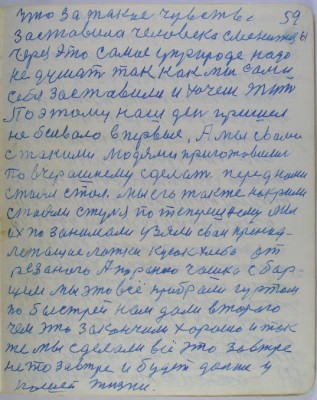 что за такие чувства 59
заставила человека сменится
через это самое у природе надо
не думат так как мы сами
себя заставили и хочем жит
Поэтому наш ден пришел
не бывало в первые, А мы с вами
с такими людями приготовили
по вчерашнему сделат. перед нами
стоял стол. мы его также накрыли
ставили стуля по тепершнему мы
их по занимали узяли свои принад-
лежащие ложки кусок хлеба от
резаного А поранно чашка с бор-
щем мы это всё прибрали гуртом
по быстрей нам дали второго
чем это закончили хорошо и так
же мы сделали всё это завтре
не то завтре и будет далше у
нашей жизни.